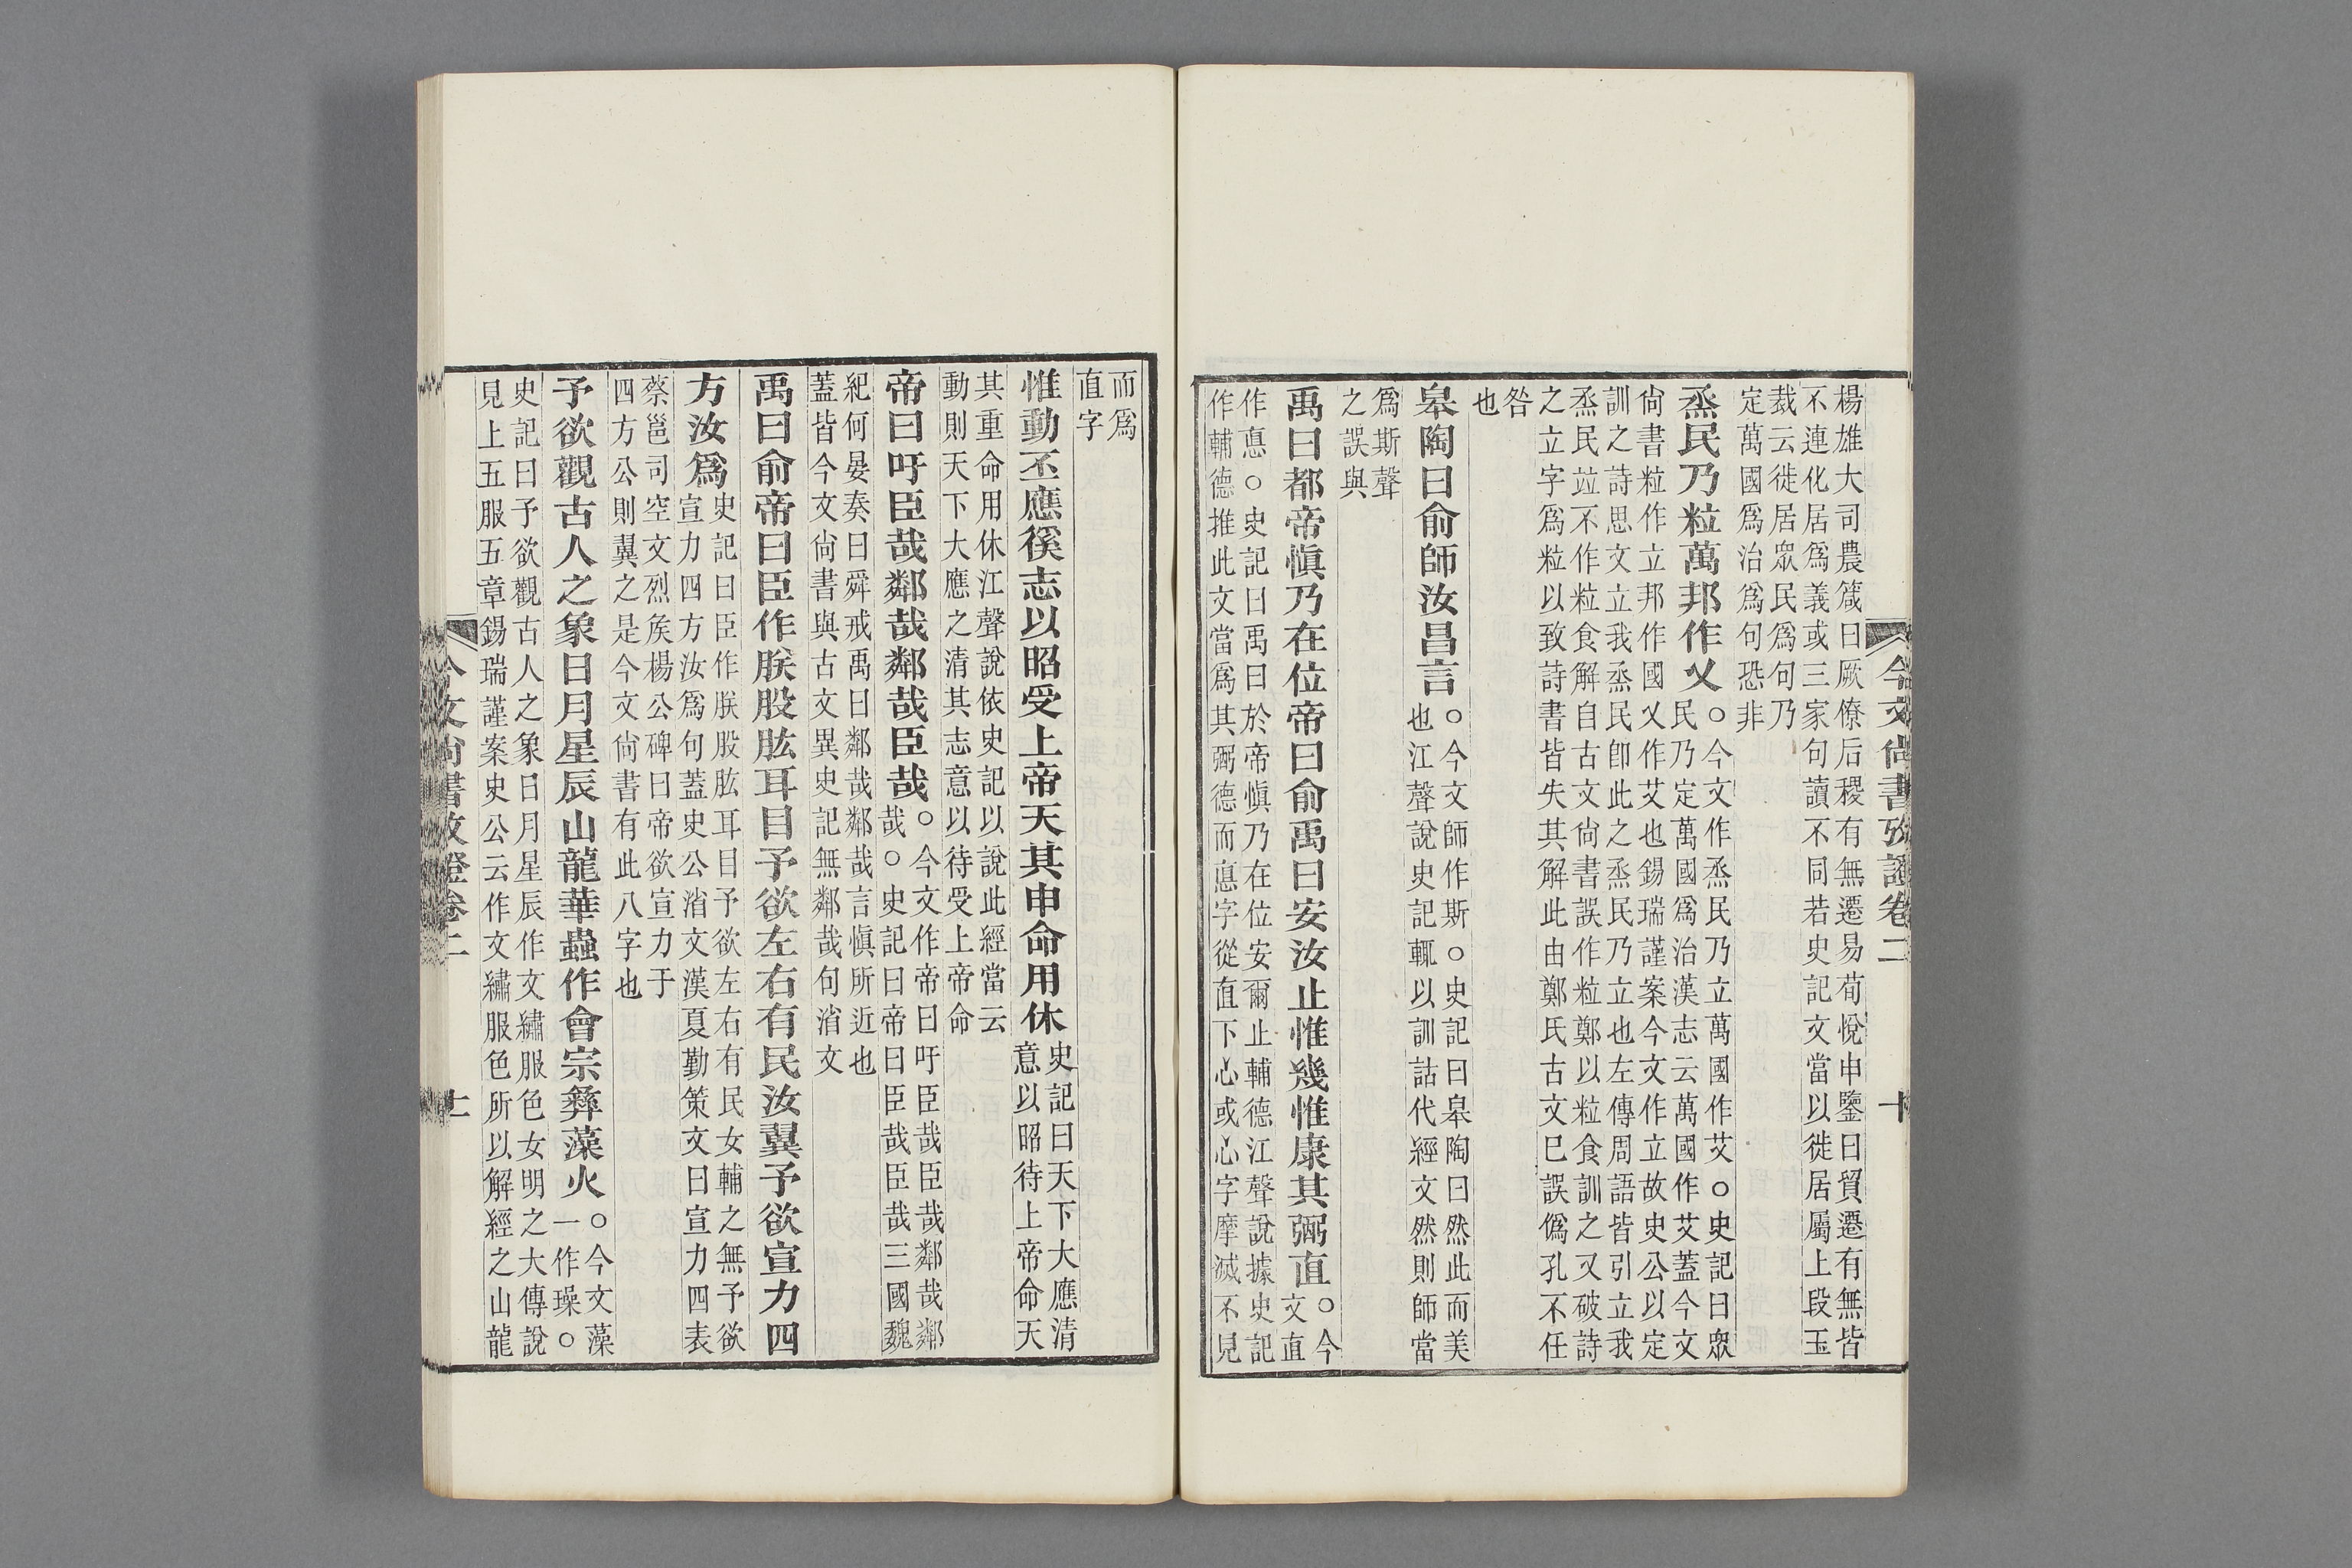 今文尚書攷證卷二
十
楊雄大司農箴曰厥僚后稷有無遷易荀悅申鑒曰貿遷有無皆
不連化居爲義或三家句讀不同若史記文當以徙居屬上段玉
裁云徙居眾民爲句乃
定萬國爲治爲句恐非
烝民乃粒萬邦作乂
○今文作烝民乃立萬國作艾○史記曰眾
民乃定萬國爲治漢志云萬國作艾蓋今文
尙書粒作立邦作國乂作艾也錫瑞謹案今文作立故史公以定
訓之詩思文立我烝民卽此之烝民乃立也左傳周語皆引立我
烝民竝不作粒食解自古文尙書誤作粒鄭以粒食訓之又破詩
之立字爲粒以致詩書皆失其解此由鄭氏古文已誤僞孔不任
咎
也
皋陶曰俞師汝昌言
○今文師作斯○史記曰皋陶曰然此而美
也江聲說史記輒以訓詁代經文然則師當
爲斯聲
之誤與
禹曰都帝愼乃在位帝曰俞禹曰安汝止惟幾惟康其弼直
○今
文直
作悳○史記曰禹曰於帝愼乃在位安爾止輔德江聲說據史記
作輔德推此文當爲其弼德而悳字從直下心或心字摩滅不見
而爲
直字
惟動丕應徯志以昭受上帝天其申命用休
史記曰天下大應清
意以昭待上帝命天
其重命用休江聲說依史記以說此經當云
動則天下大應之清其志意以待受上帝命
帝曰吁臣哉鄰哉鄰哉臣哉
○今文作帝曰吁臣哉臣哉鄰哉鄰
哉○史記曰帝曰臣哉臣哉三國魏
紀何晏奏曰舜戒禹曰鄰哉鄰哉言愼所近也
蓋皆今文尙書與古文異史記無鄰哉句消文
禹曰俞帝曰臣作朕股肱耳目予欲左右有民汝翼予欲宣力四
方汝爲
史記曰臣作朕股肱耳目予欲左右有民女輔之無予欲
宣力四方汝爲句蓋史公消文漢夏勤策文曰宣力四表
蔡邕司空文烈矦楊公碑曰帝欲宣力于
四方公則翼之是今文尙書有此八字也
予欲觀古人之象日月星辰山龍華蟲作會宗彝藻火
○今文藻
一作璪○
史記曰予欲觀古人之象日月星辰作文繡服色女明之大傳說
見上五服五章錫瑞謹案史公云作文繡服色所以解經之山龍
今文尙書攷證卷二